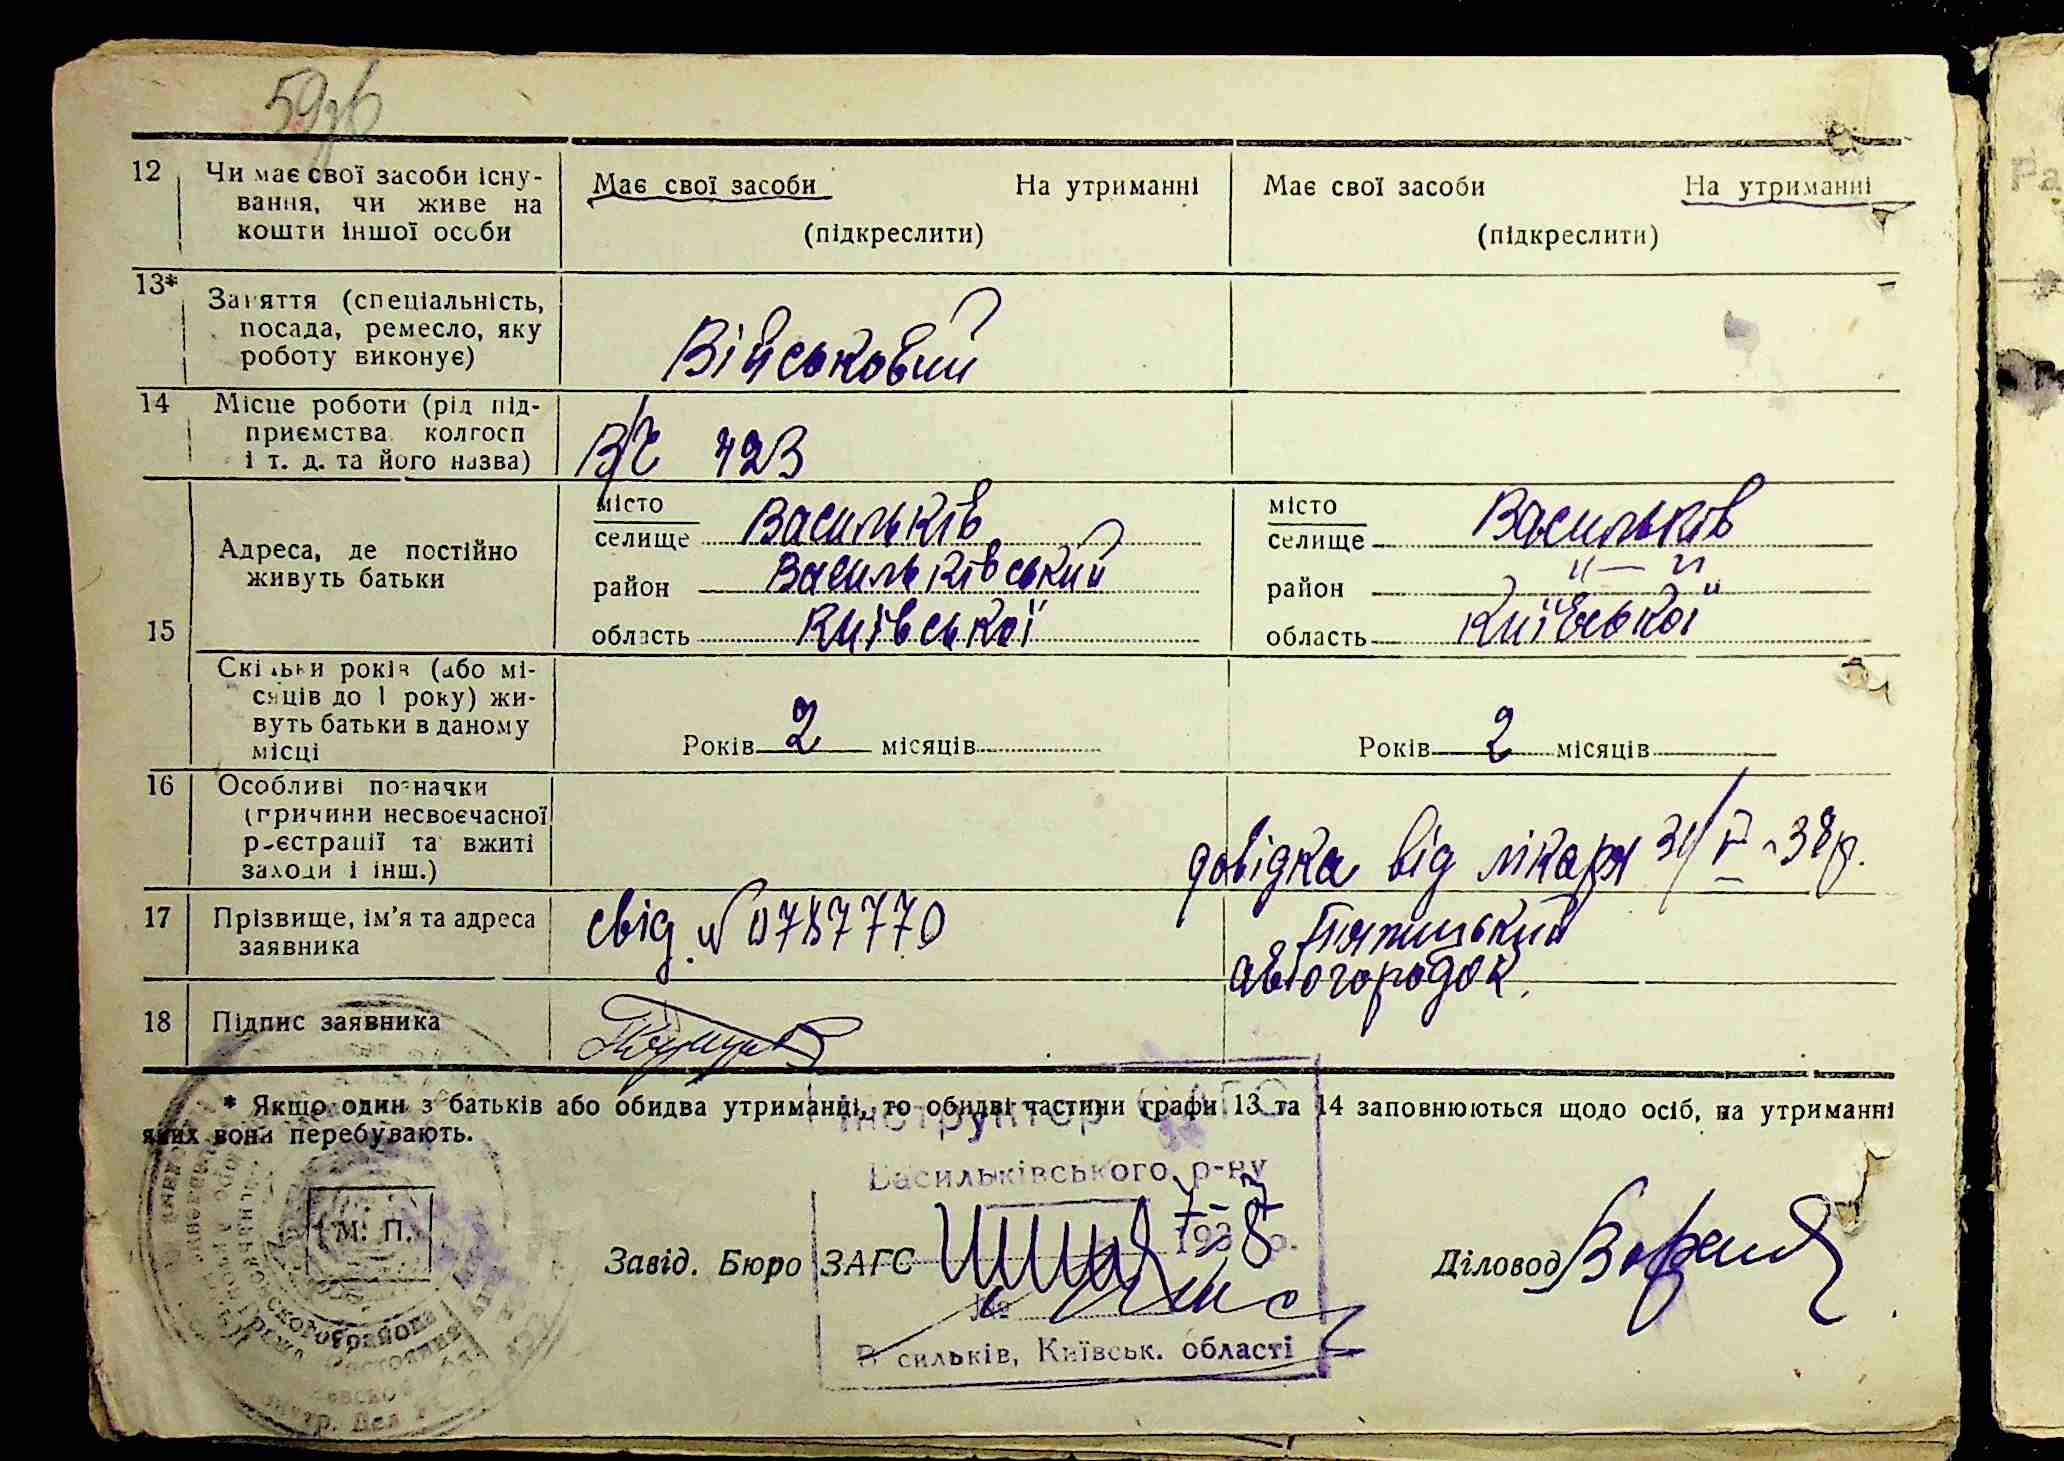 59зв
12 Чи має свої засоби існу-
вання, чи живе на
кошти іншої особи
Має свої засоби На утриманні
(підкреслити)
Має свої засоби На утриманні
(підкреслити)
13* Заняття (спеціальність,
посада, ремесло, яку
роботу виконує)
Військовий
14 Місце роботи (рід під-
приємства колгосп
і т. д. та його назва)
В/Ч 423
15
Адреса, де постійно
живуть батьки
місто
селище Васильків
район Васильківський
область Київської
місто
селище Васильків
район "—"
область Київської
Скільки років (або мі-
сяців до 1 року) жи-
вуть батьки в даному
місці
Років 2 місяців
Років 2 місяців
16 Особливі позначки
(причини несвоєчасної
реєстрації та вжиті
заходи і інш.)
довідка від лікаря 38р.
17 Прізвище, ім'я та адреса
заявника
свід. № 0787770
автогородок.
18 Підпис заявника
* Якщо один з батьків або обидва утриманці, то обидві частини графи 13 та 14 заповнюються щодо осіб, на утриманні
яких вони перебувають.
Інструктор ЗАГС
Васильківського р-ну
193 8 р.
№
Васильків, Київськ. області
М. П.
Завід. Бюро ЗАГС
Діловод